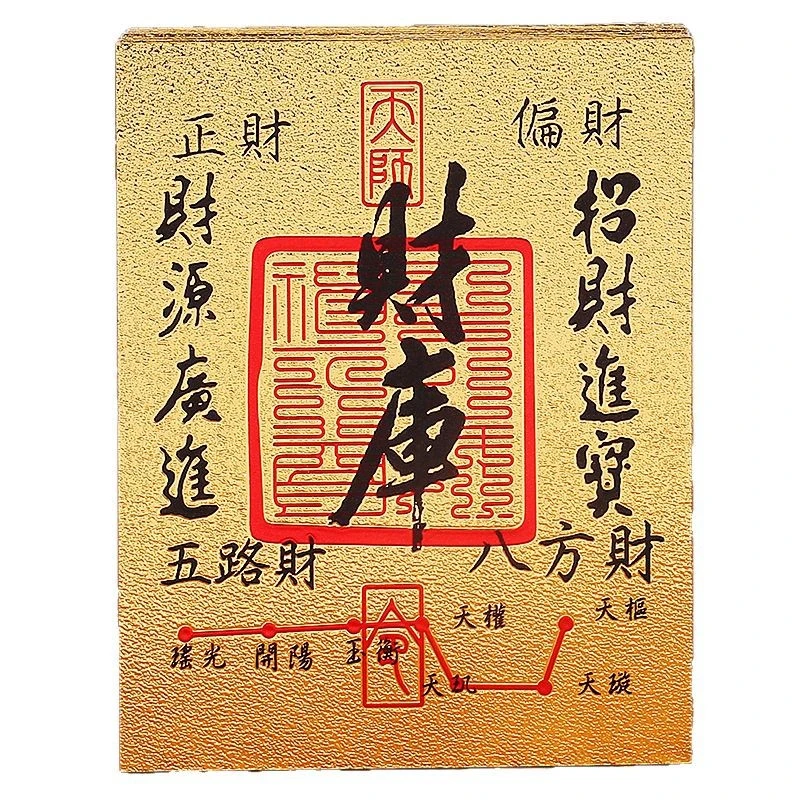 天師
正財
偏財
財庫
招財進寶
財源廣進
五路財
八方財
天權
天樞
瑤光
開陽
玉衡
天璇
命